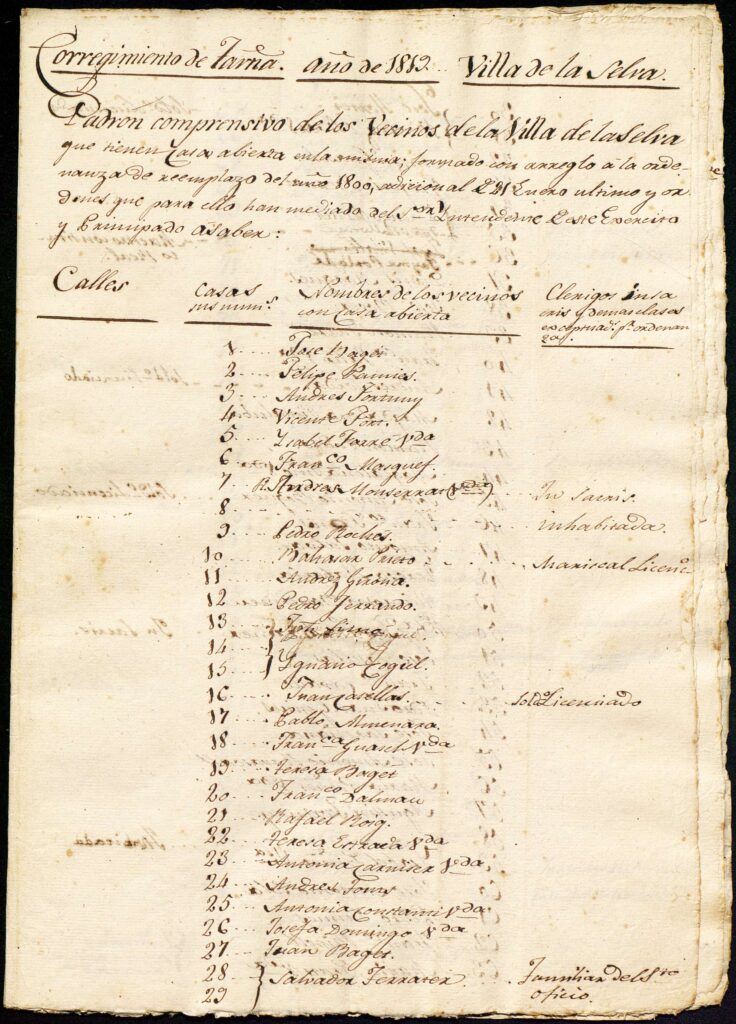 Corregimiento de Tarña. año de 1819. Villa de la Selva.
Padron comprensivo de los Vecinos de la Villa de la Selva
que tienen Casa abierta en la misma; formado con arreglo à la orde-
nanza de reemplazo del año 1800, adicional de 21 Enero ultimo y or-
denes que para ello han mediado del Sor Yntendente de este Exercito
y Principado asaber:
Calles casas sus nums. Nombres de los vecinos con Casa abierta Clerigos in sacris y demas clases exceptuads. pr. ordenanza.
1 Jose Baget
2 Felipe Pamies.
3 Andres Fortuny
4 Vicente Font.
5 Ysabel Farré Vda
6 Franco Masquef.
7 Andres Monserrat (Vda) In Sacris.
8 inhabitada.
9 Pedro Roches.
10 Baltasar Prieto Mariscal Licenc
11 Andrez Girona.
12 Pedro Ferrando.
13
14
15 Ygnacio Cogúl.
16 Juan Casellas. Soldo Licenciado
17 Pablo Almenara.
18 Franca Guasch Vda
19 Teresa Baget
20 Franco Dalmau
21 Rafael Roig.
22 Teresa Estrada Vda
23 Antonia Carniser Vda
24 Andres Fons
25 Antonia Constanti Vda
26 Josefa Domingo Vda
27 Juan Baget.
28 Salvador Ferrater. Familiar del Sto
29 oficio.